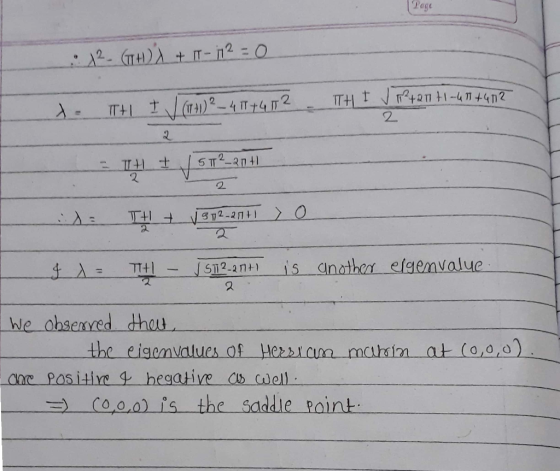 Page
∴ λ² - (π+1)λ + π - π² = 0
λ = π+1 ± √(π+1)² - 4π + 4π² / 2 = π+1 ± √π² + 2π + 1 - 4π + 4π² / 2
= π+1/2 ± √5π² - 2π + 1 / 2
∴ λ = π+1/2 + √5π² - 2π + 1 / 2 > 0
& λ = π+1/2 - √5π² - 2π + 1 / 2 is another eigenvalue.
We observed that,
the eigenvalues of Hessian matrix at (0,0,0).
are positive & negative as well.
⇒ (0,0,0) is the saddle point.